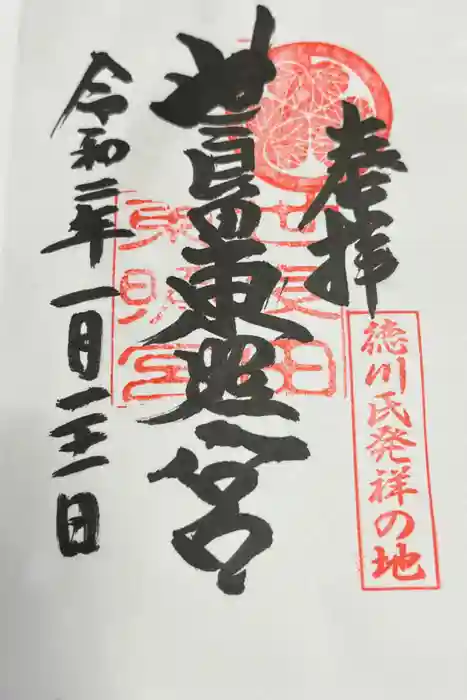 奉拝
徳川氏発祥の地
世良田東照宮
世良田
東照宮
令和二年一月二十一日